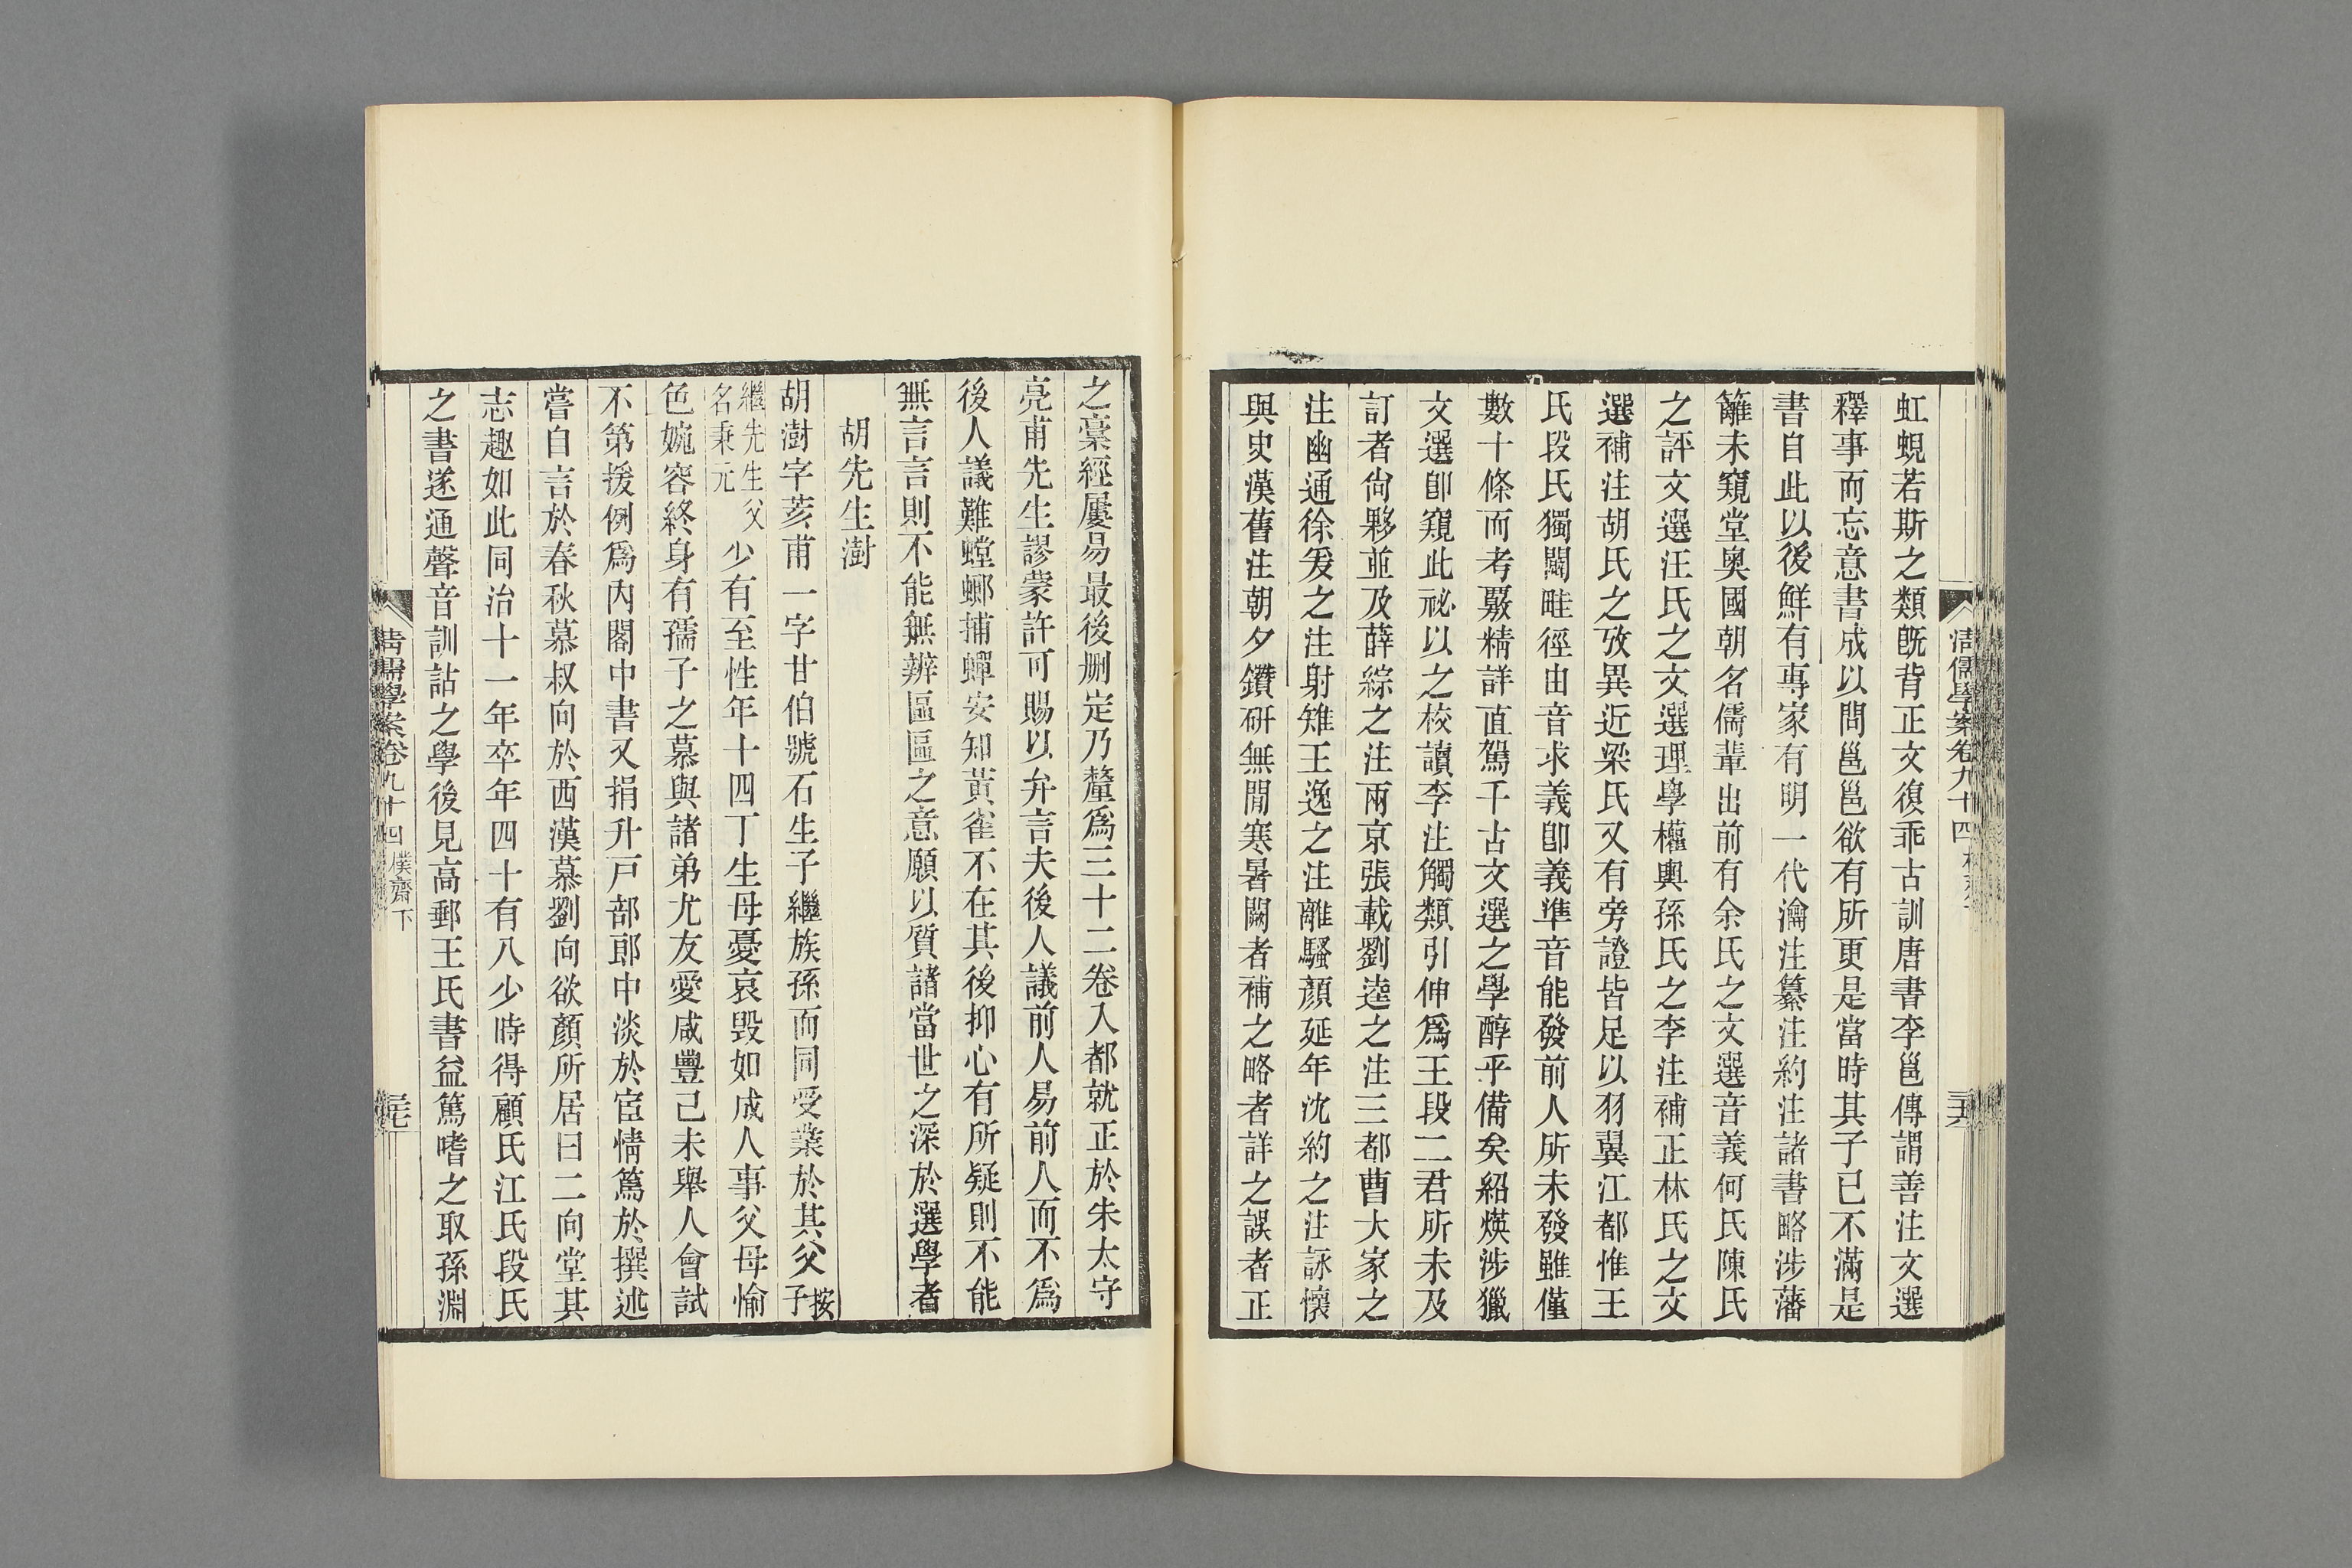 虹蜺若斯之類旣背正文復乖古訓唐書李邕傳謂善注文選
釋事而忘意書成以問邕邕欲有所更是當時其子已不滿是
書自此以後鮮有專家有明一代瀹注纂注約注諸書略涉藩
籬未窺堂奧國朝名儒輩出前有余氏之文選音義何氏陳氏
之評文選汪氏之文選理學權輿孫氏之李注補正林氏之文
選補注胡氏之攷異近梁氏又有旁證皆足以羽翼江都惟王
氏段氏獨闢畦徑由音求義卽義準音能發前人所未發雖僅
數十條而考覈精詳直駕千古文選之學醇乎備矣紹煐涉獵
文選卽窺此祕以之校讀李注觸類引伸爲王段二君所未及
訂者尙夥並及薛綜之注兩京張載劉逵之注三都曹大家之
注幽通徐爰之注射雉王逸之注離騷顏延年沈約之注詠懷
與史漢舊注朝夕鑽硏無閒寒暑闕者補之略者詳之誤者正
清儒學案卷九十四
三六
之稾經屢易最後刪定乃釐爲三十二卷入都就正於朱太守
亮甫先生謬蒙許可賜以弁言夫後人議前人易前人而不爲
後人議難螳螂捕蟬安知黃雀不在其後抑心有所疑則不能
無言言則不能無辨區區之意願以質諸當世之深於選學者
胡先生澍
胡澍字荄甫一字甘伯號石生子繼族孫而同受業於其父按子
繼先生父名秉元少有至性年十四丁生母憂哀毀如成人事父母愉
色婉容終身有孺子之慕與諸弟尤友愛咸豐己未舉人會試
不第援例爲內閣中書又捐升戸部郎中淡於宦情篤於撰述
嘗自言於春秋慕叔向於西漢慕劉向欲顏所居曰二向堂其
志趣如此同治十一年卒年四十有八少時得顧氏江氏段氏
之書遂通聲音訓詁之學後見高郵王氏書益篤嗜之取孫淵
清儒學案卷九十四 樸齋下
三七